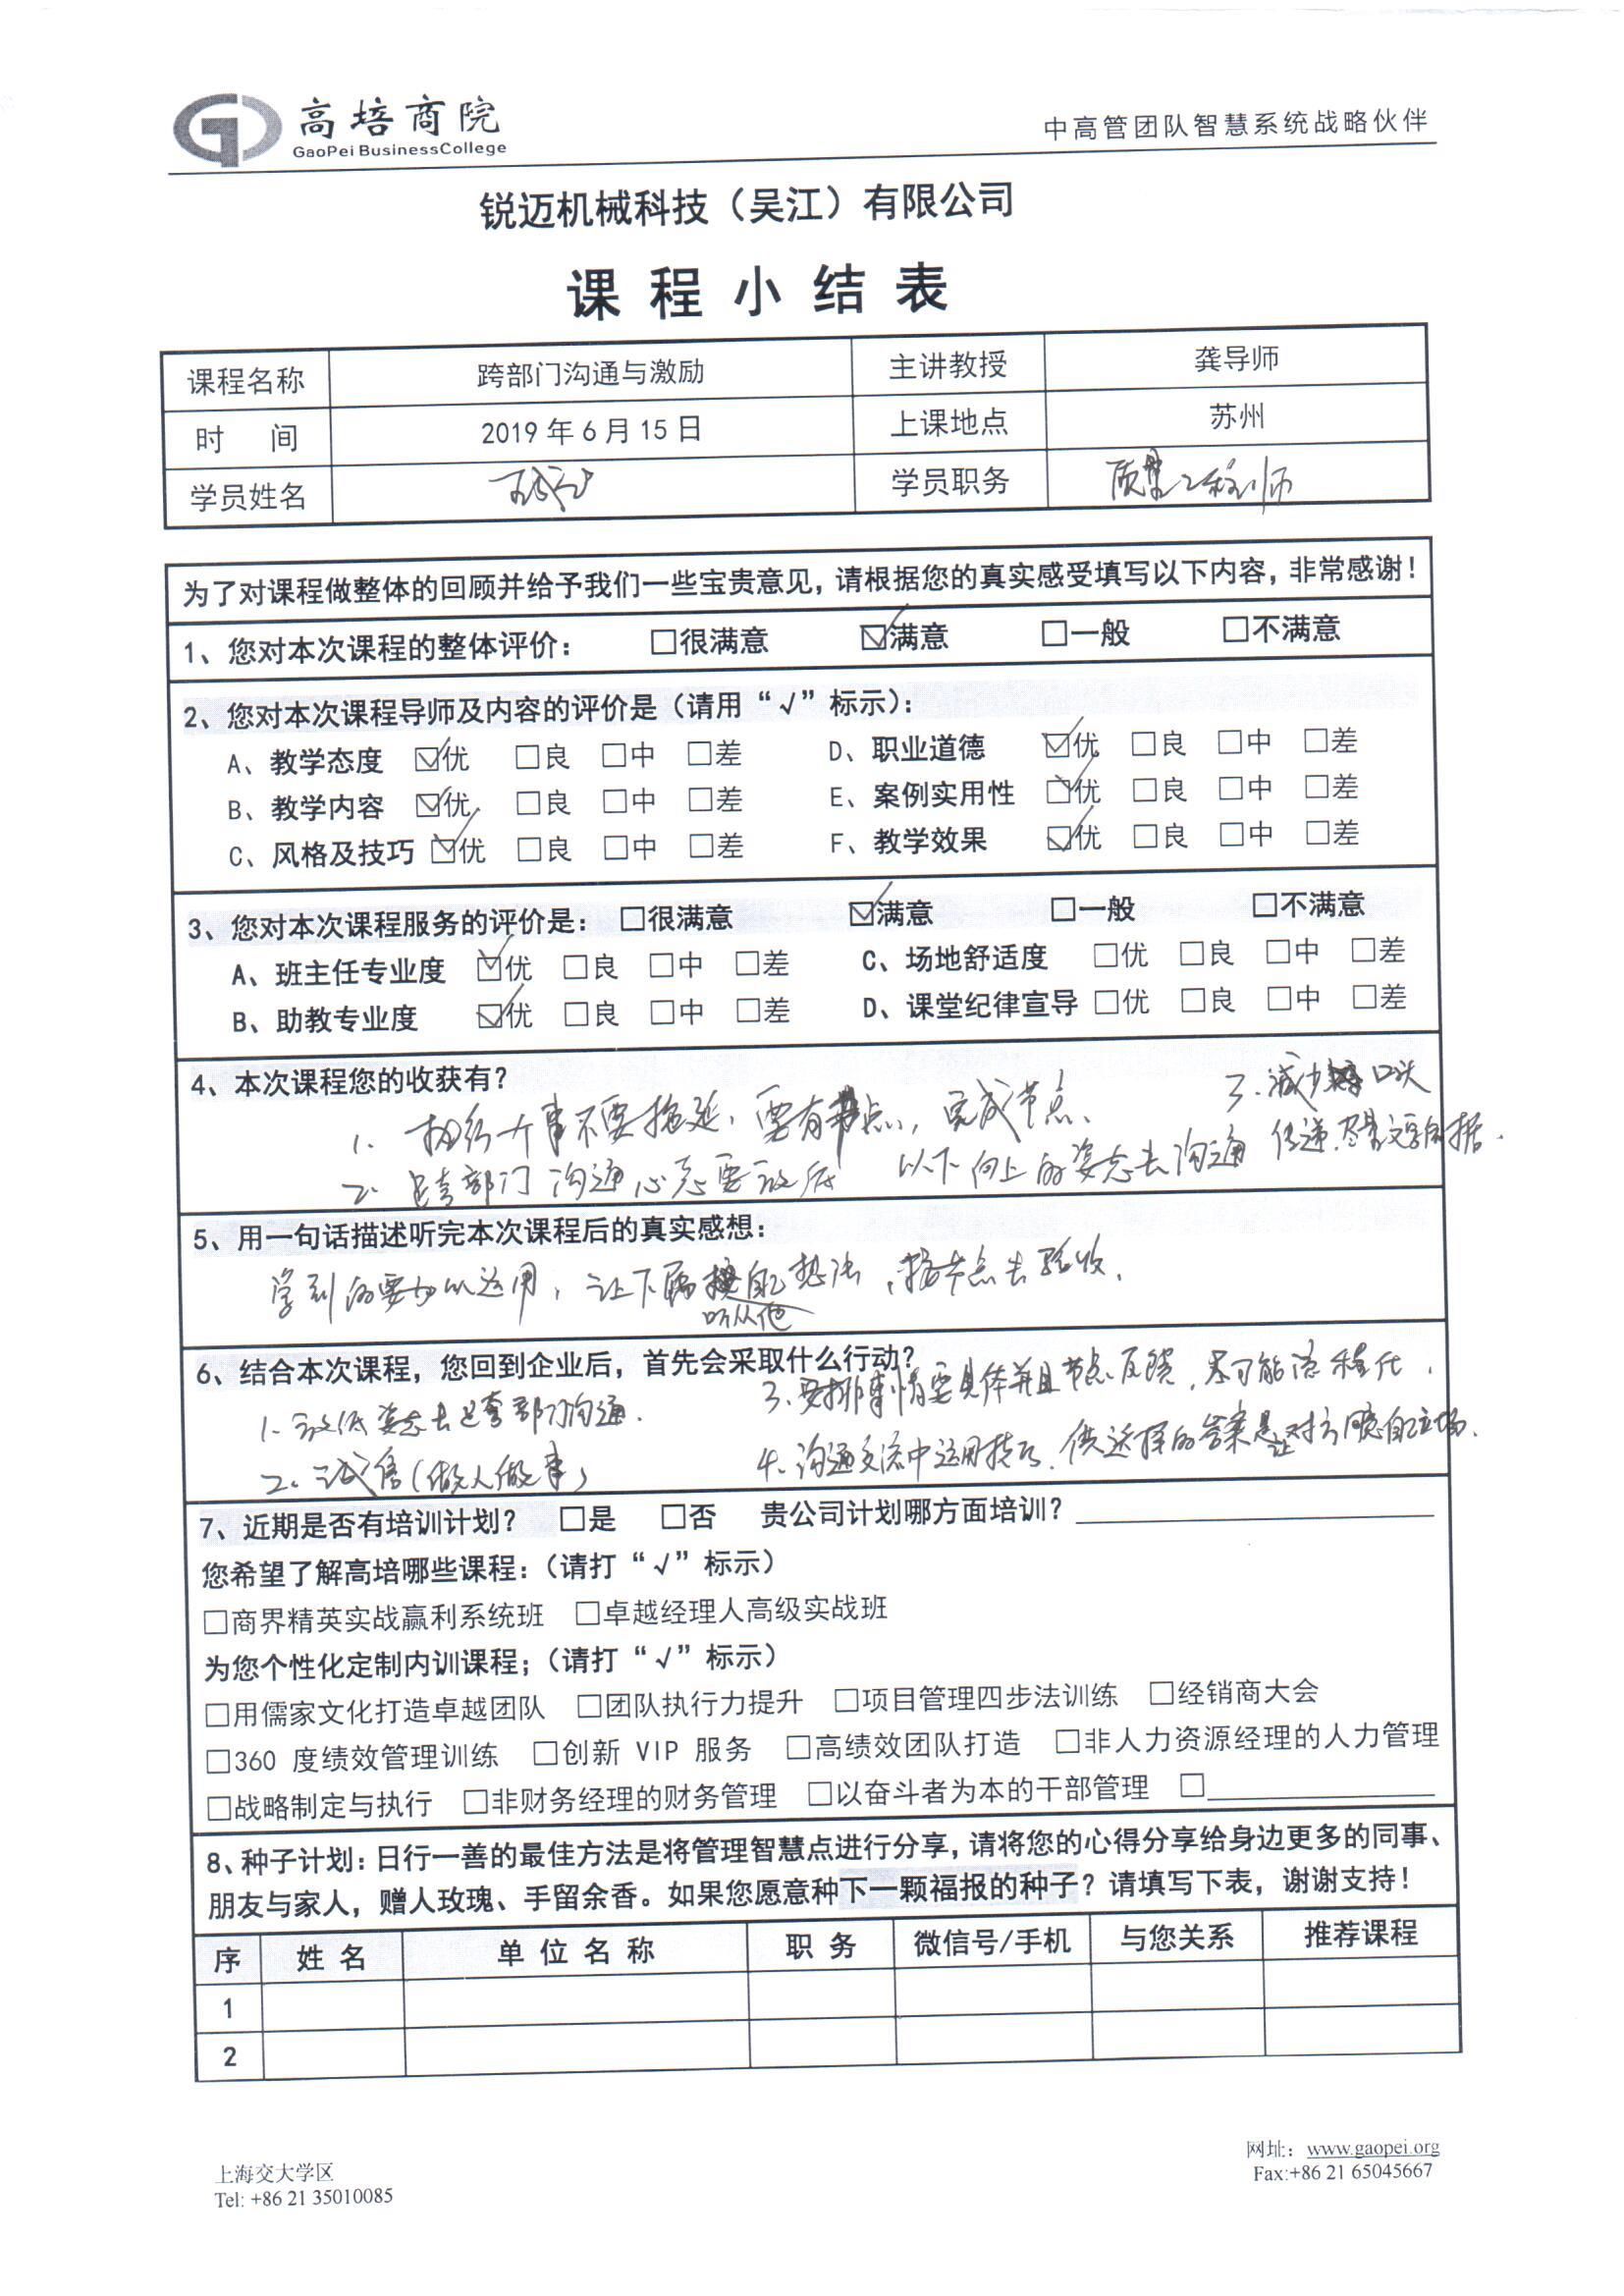 高培商院
GaoPei BusinessCollege
中高管团队智慧系统战略伙伴
锐迈机械科技（吴江）有限公司
课程小结表
课程名称 跨部门沟通与激励 主讲教授 龚导师
时 间 2019年6月15日 上课地点 苏州
学员姓名 学员职务 质量工程师
为了对课程做整体的回顾并给予我们一些宝贵意见，请根据您的真实感受填写以下内容，非常感谢！
1、您对本次课程的整体评价： □很满意 ☑满意 □一般 □不满意
2、您对本次课程导师及内容的评价是（请用“√”标示）：
A、教学态度 ☑优 □良 □中 □差 D、职业道德 ☑优 □良 □中 □差
B、教学内容 ☑优 □良 □中 □差 E、案例实用性 ☑优 □良 □中 □差
C、风格及技巧 ☑优 □良 □中 □差 F、教学效果 ☑优 □良 □中 □差
3、您对本次课程服务的评价是：□很满意 ☑满意 □一般 □不满意
A、班主任专业度 ☑优 □良 □中 □差 C、场地舒适度 □优 □良 □中 □差
B、助教专业度 ☑优 □良 □中 □差 D、课堂纪律宣导 □优 □良 □中 □差
4、本次课程您的收获有？
1. 执行 事不要拖延，要有节点，完成节点、
2. 跨部门沟通心态要放低 以下向上的姿态去沟通
3. 减少 口头
传递，尽量文字 据.
5、用一句话描述听完本次课程后的真实感想：
学到的要加以运用，让下属 想法，按节点去验收，
听从他
6、结合本次课程，您回到企业后，首先会采取什么行动？
1. 放低姿态去跨部门沟通.
2. 诚信（做人做事）
3. 安排事情要具体并且节点反馈，尽可能流程化，
4. 沟通交流中运用技巧，供选择的答案是让对方 自 立场.
7、近期是否有培训计划？ □是 □否 贵公司计划哪方面培训？
您希望了解高培哪些课程：（请打“√”标示）
□商界精英实战赢利系统班 □卓越经理人高级实战班
为您个性化定制内训课程；（请打“√”标示）
□用儒家文化打造卓越团队 □团队执行力提升 □项目管理四步法训练 □经销商大会
□360 度绩效管理训练 □创新 VIP 服务 □高绩效团队打造 □非人力资源经理的人力管理
□战略制定与执行 □非财务经理的财务管理 □以奋斗者为本的干部管理 □
8、种子计划：日行一善的最佳方法是将管理智慧点进行分享，请将您的心得分享给身边更多的同事、
朋友与家人，赠人玫瑰、手留余香。如果您愿意种下一颗福报的种子？请填写下表，谢谢支持！
序 姓名 单位名称 职务 微信号/手机 与您关系 推荐课程
1
2
上海交大学区
Tel: +86 21 35010085
网址：www.gaopei.org
Fax:+86 21 65045667